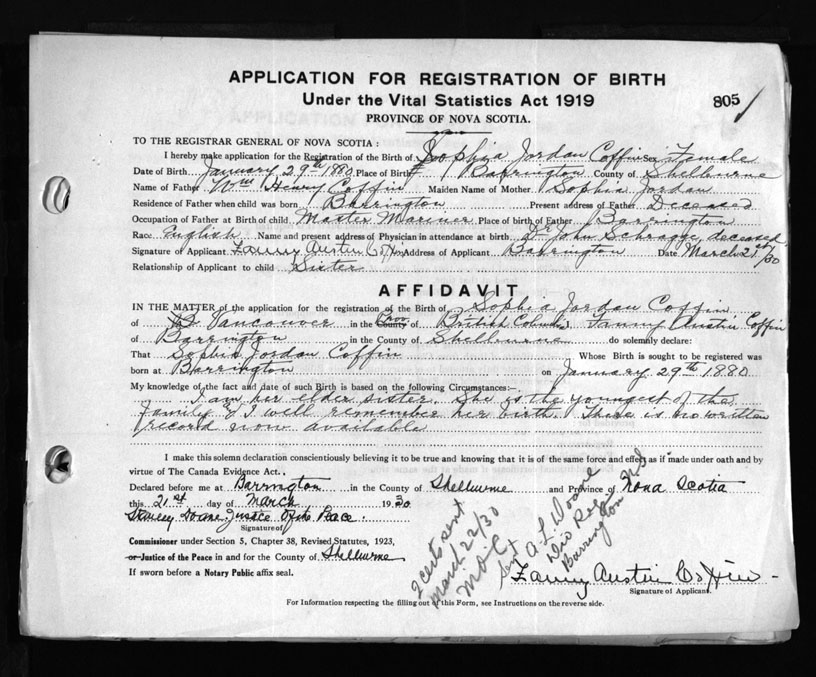 APPLICATION FOR REGISTRATION OF BIRTH
Under the Vital Statistics Act 1919
805
PROVINCE OF NOVA SCOTIA.
TO THE REGISTRAR GENERAL OF NOVA SCOTIA:
I hereby make application for the Registration of the Birth of Sophia Jordan Coffin Sex Female
Date of Birth January 29th 1880 Place of Birth Barrington County of Shelburne
Name of Father Wm Henry Coffin Maiden Name of Mother Sophia Jordan
Residence of Father when child was born Barrington Present address of Father Deceased
Occupation of Father at Birth of child Master Mariner Place of birth of Father Barrington
Race English Name and present address of Physician in attendance at birth Dr John Schrage, deceased
Signature of Applicant Fanny Austin Coffin Address of Applicant Barrington Date March 21st/30
Relationship of Applicant to child Sister
AFFIDAVIT
IN THE MATTER of the application for the registration of the Birth of Sophia Jordan Coffin
of Vancouver in the Prov County of British Columb. I, Fanny Austin Coffin
of Barrington in the County of Shelburne do solemnly declare:
That Sophia Jordan Coffin Whose Birth is sought to be registered was
born at Barrington on January 29th 1880
My knowledge of the fact and date of such Birth is based on the following Circumstances:—
I am her elder sister. She is the youngest of the
family & I well remember her birth. There is no written
record now available
I make this solemn declaration conscientiously believing it to be true and knowing that it is of the same force and effect as if made under oath and by
virtue of The Canada Evidence Act.
Declared before me at Barrington in the County of Shelburne and Province of Nova Scotia
this 21st day of March 1930
Stanley Doane Justice of the Peace
Signature of
Commissioner under Section 5, Chapter 38, Revised Statutes, 1923,
or Justice of the Peace in and for the County of Shelburne
If sworn before a Notary Public affix seal.
2 certs sent
March 22/30
M.D.C.
Sent A. L. Doane
Div Reg.
Barrington NS
Fanny Austin Coffin
Signature of Applicant
For Information respecting the filling out of this Form, see Instructions on the reverse side.